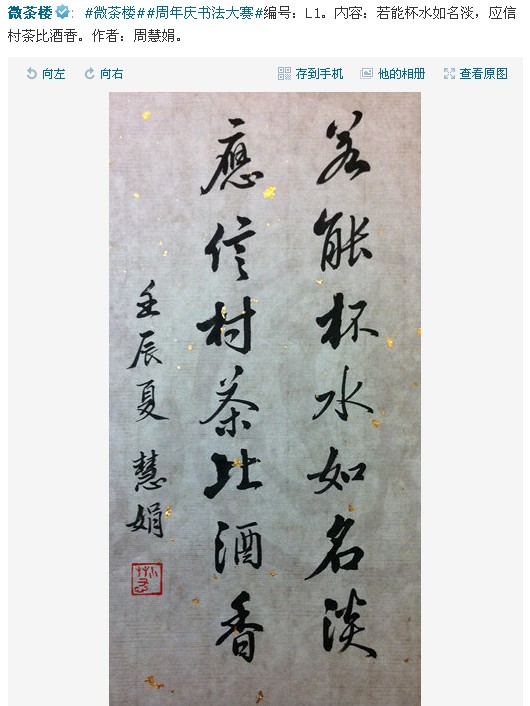 微茶楼 V: #微茶楼##周年庆书法大赛#编号：L1。内容：若能杯水如名淡，应信
村茶比酒香。作者：周慧娟。
向左 向右 存到手机 他的相册 查看原图
若能杯水如名淡
應信村茶比酒香
壬辰夏 慧娟